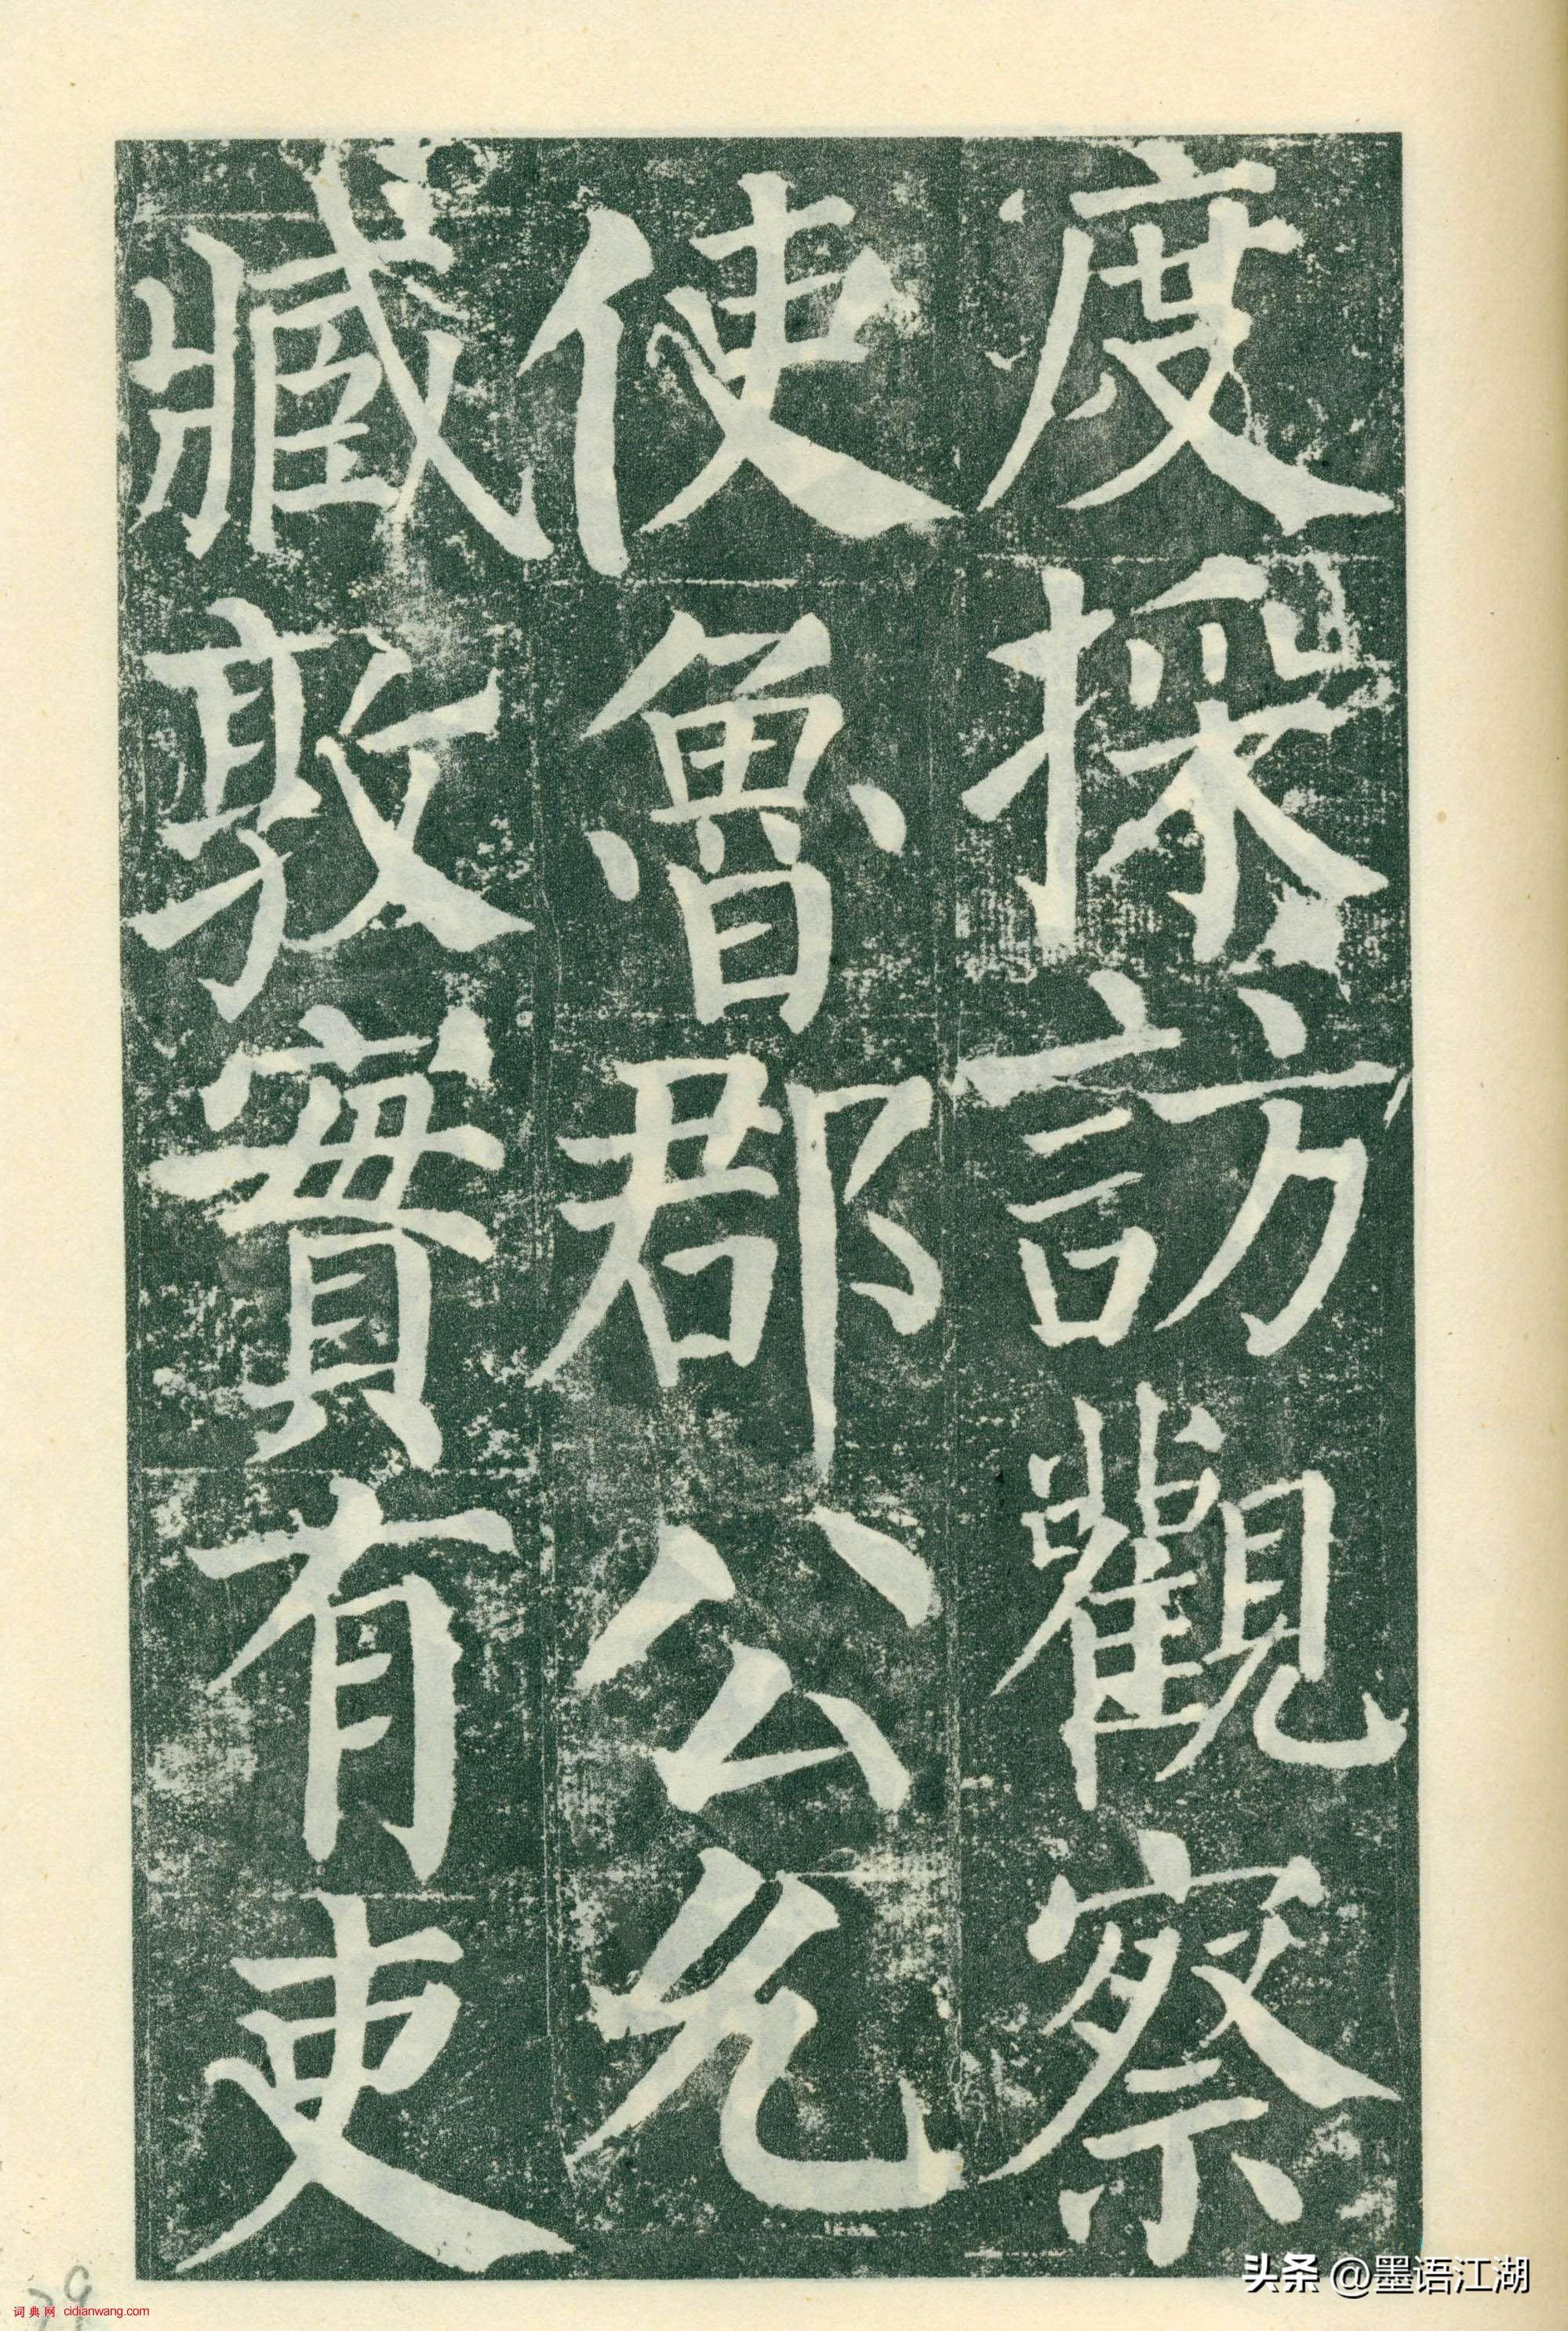 度採訪觀察
使魯郡公允
臧敦實有吏
头条 @墨语江湖
词典网 cidianwang.com
29